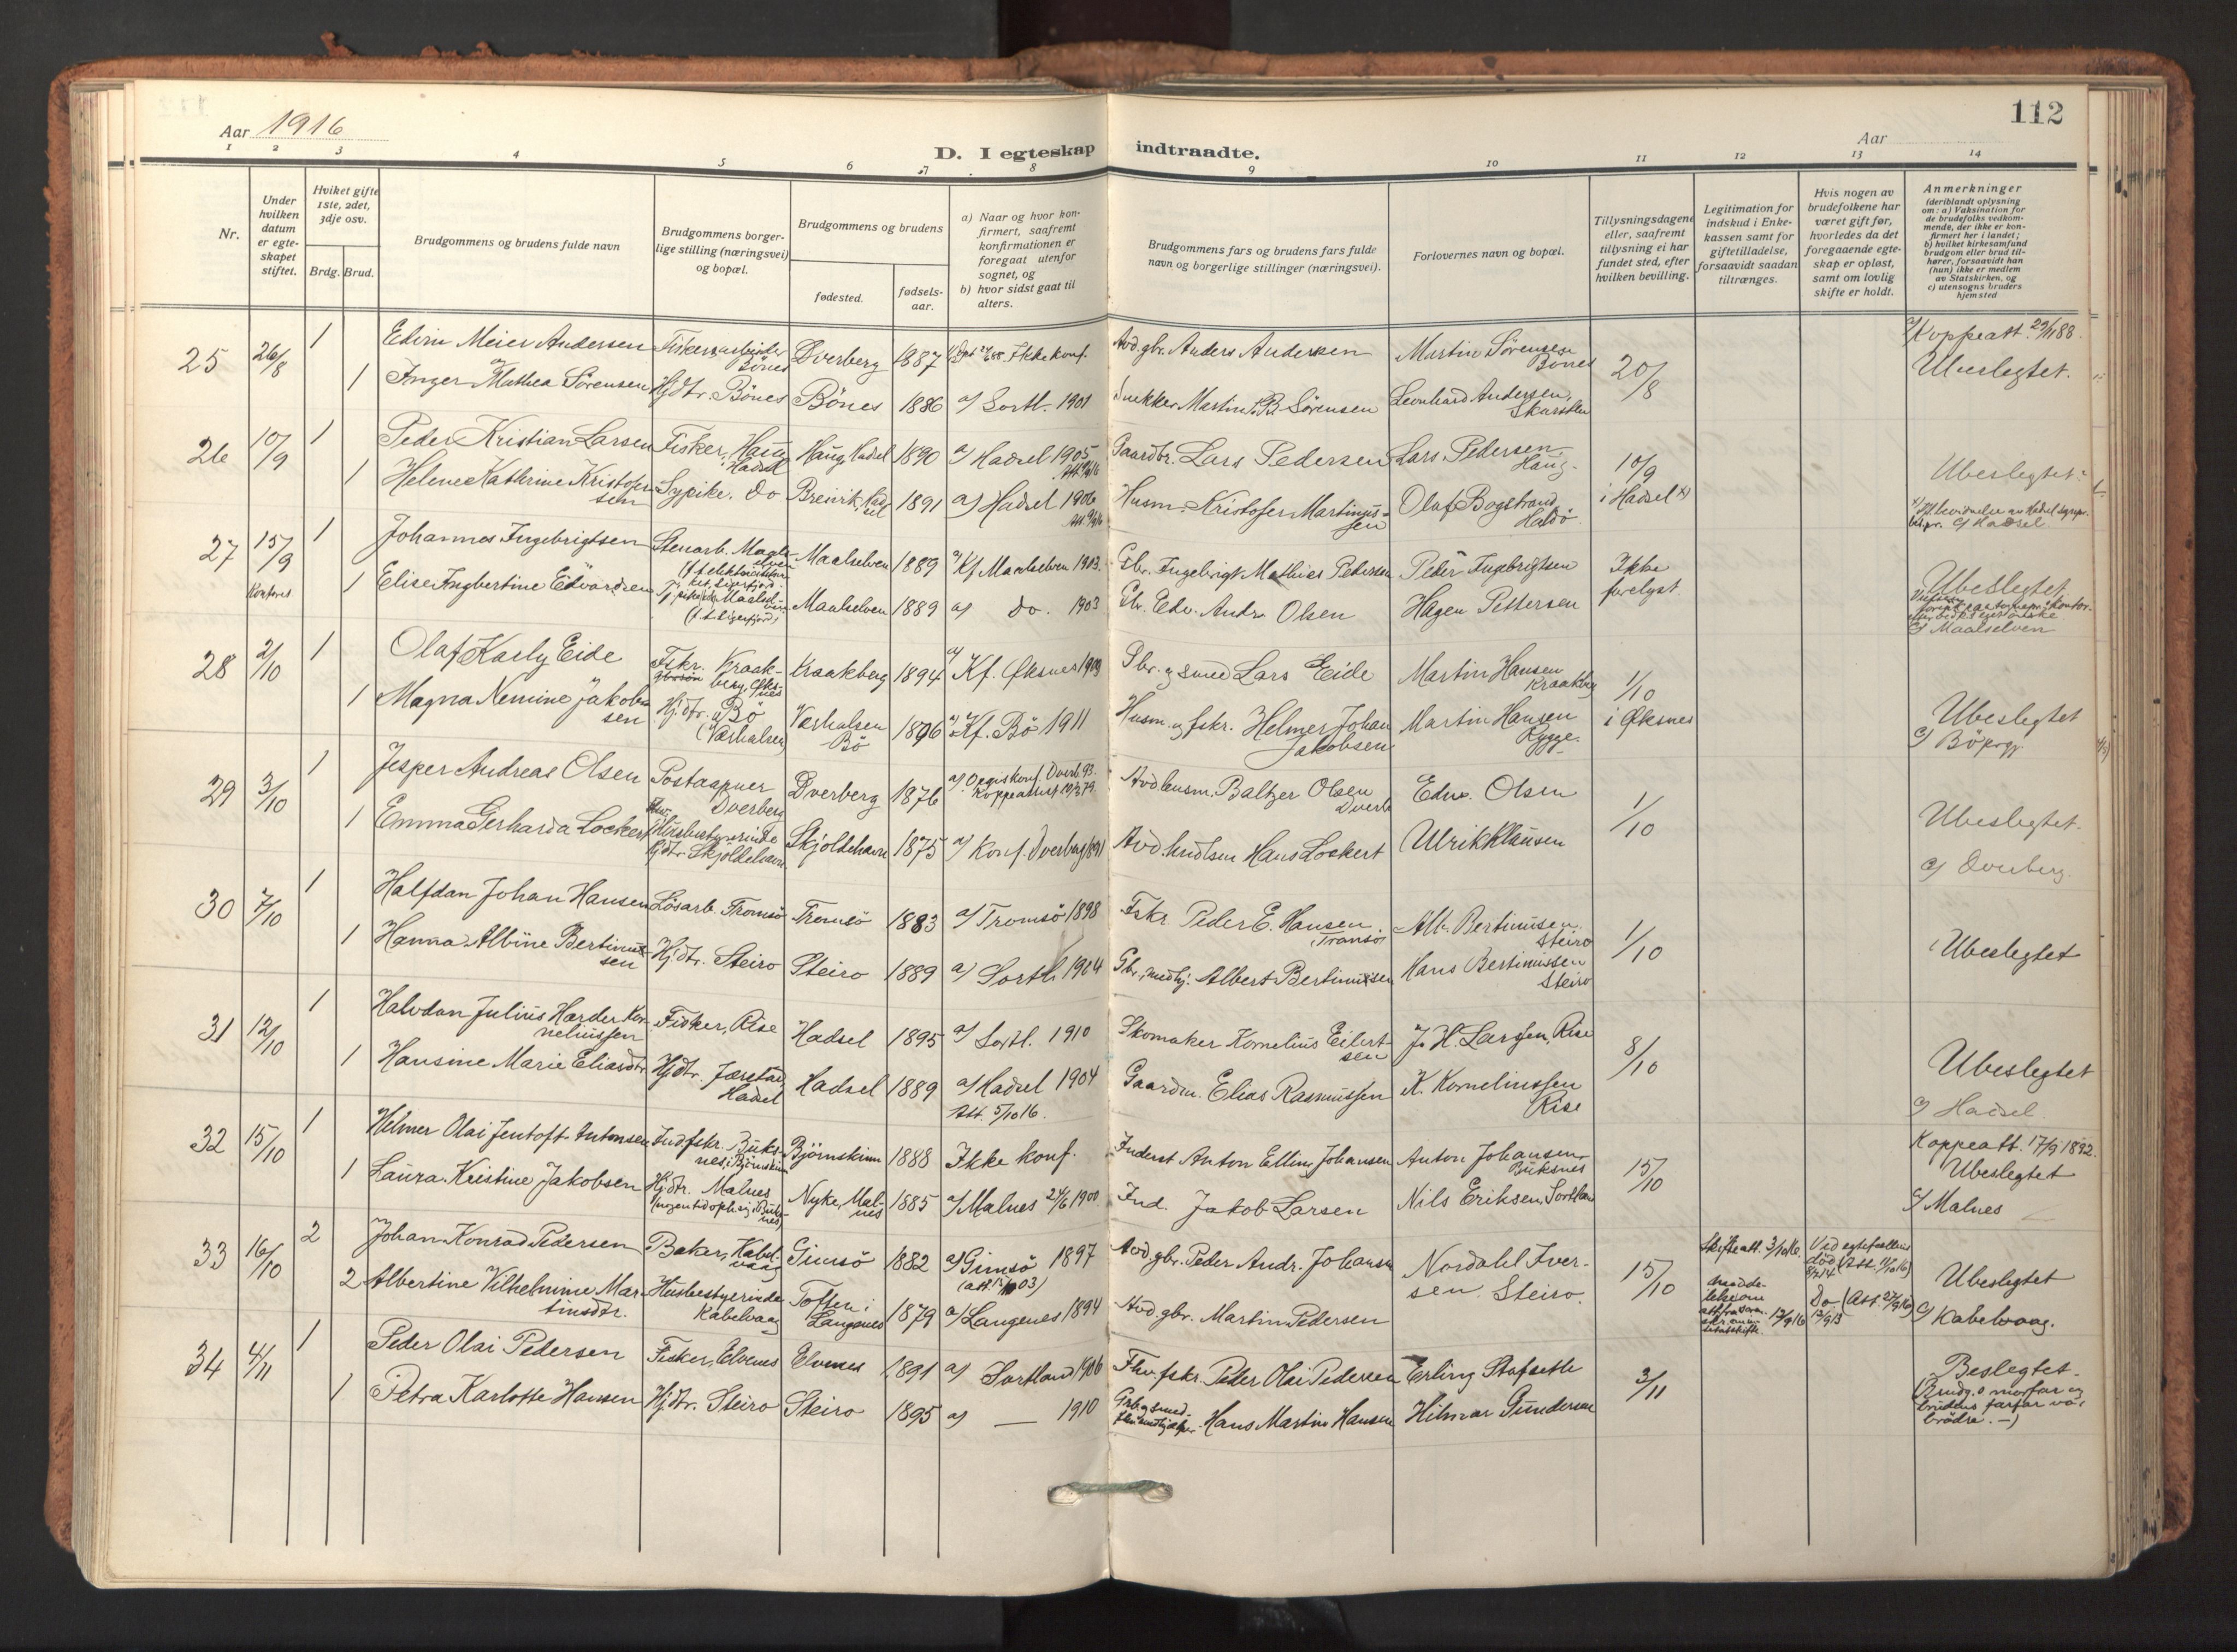 112
Aar 1916
Aar
D. I egteskap indtraadte.
1 2 3 4 5 6 7 8 9 10 11 12 13 14
Nr.
Under hvilken datum er egteskapet stiftet.
Hviket gifte 1ste, 2det, 3dje osv.
Brdg. Brud.
Brudgommens og brudens fulde navn
Brudgommens borgerlige stilling (næringsvei) og bopæl.
Brudgommens og brudens
fødested.
fødselsaar.
a) Naar og hvor konfirmert, saafremt konfirmationen er foregaat utenfor sognet, og
b) hvor sidst gaat til alters.
Brudgommens fars og brudens fars fulde navn og borgerlige stillinger (næringsvei).
Forlovernes navn og bopæl.
Tillysningsdagene eller, saafremt tillysning ei har fundet sted, efter hvilken bevilling.
Legitimation for indskud i Enkekassen samt for giftetilladelse, forsaavidt saadan tiltrænges.
Hvis nogen av brudefolkene har været gift før, hvorledes da det foregaaende egteskap er opløst, samt om lovlig skifte er holdt.
Anmerkninger (deriblandt oplysning om: a) Vaksination for de brudefolks vedkommende, der ikke er konfirmert her i landet; b) hvilket kirkesamfund brudgom eller brud tilhører, forsaavidt han (hun) ikke er medlem av Statskirken, og c) utensogns bruders hjemsted
25 26/8 1 Edvin Meier Andersen Fiskeriarbeider Bönes Dverberg 1887 Ikke konf. Avd. gbr. Anders Andersen Martin Sörensen Bönes 20/8 Koppeatt. 29/11 88.
1 Inger Mathea Sörensen Hjdtr. Bönes Bönes 1886 a) Sortl. 1901 Snekker Martin B. Sörensen Leonhard Andersen, Skarstein Ubeslegtet.
26 10/9 1 Peder Kristian Larsen Fisker, Haug Hadsel Haug, Hadsel 1890 a) Hadsel 1905 Gaardbr. Lars Pedersen Lars Pedersen Haug. 10/9 i Hadsel x) Ubeslegtet.
1 Helene Kathrine Kristofersen Sypike. do Breivik, Hadsel 1891 a) Hadsel 1906 Husm. Kristofer Martinussen Olaf Bogstrand c) Hadsel
27 15/9 1 Johannes Ingebrigtsen Stenarb. Maalselven Maalselven 1889 a) Kf Maalselven 1903. Gbr. Ingebrigt Mathias Pedersen Peder Ingebrigtsen Ikke forelyst Ubeslegtet
Kontoret 1 Elise Ingbertine Edvardsen Maalselven 1889 a) do. 1903 Gbr. Edv. Andr. Olsen Hagen Pettersen c) Maalselven
28 2/10 1 Olaf Karly Eide Fskr. Kraakberg, Øksnes Kraakberg 1894 a) Kf. Øksnes 1909 Gbr. og smed Lars Eide Martin Hansen Kraakberg 1/10 i Øksnes Ubeslegtet
1 Magna Nemine Jakobsen Hj.dtr. Bö (Værhalsen) Værhalsen Bö 1896 a) Kf. Bö 1911 Husm. og fskr. Helmer Johan Jakobsen Martin Hansen Rygge. c) Bö prgj.
29 3/10 1 Jesper Andreas Olsen Postaapner Dverberg Dverberg 1876 Avd husm. Baltzer Olsen Dverb Edv. Olsen 1/10 Ubeslegtet.
1 Emma Gerharda Lockert Husbestyrerinde Hjdtr. Skjoldehavn Skjoldehavn 1875 a) Konf. Dverberg 1891 Avd. Hans Lockert Ulrik Klausen c) Dverberg.
30 7/10 1 Halfdan Johan Hansen Lösarb. Tromsö Tromsö 1883 a) Tromsö 1898 Fskr. Peder E. Hansen Tromsö Alb. Bertinusen. Steiro 1/10 Ubeslegtet
1 Hanna Albine Bertinussen Hjdtr. Steiro Steiro 1889 a) Sortl. 1904 Gbr, medhj. Albert Bertinussen Hans Bertinussen Steiro
31 12/10 1 Halvdan Julius Harder Korneliussen Fisker, Rise Hadsel 1895 a) Sortl. 1910 Skomaker Kornelius Eilertsen J. H. Larssen, Rise 8/10 Ubeslegtet
1 Hansine Marie Eliasdtr Hjdtr. Jörstad Hadsel Hadsel 1889 a) Hadsel 1904 Att. 5/10 16. Gaardm. Elias Rasmussen K. Korneliussen Rise c) Hadsel.
32 15/10 1 Helmer Olai Jentoft Antonsen Indfskr. Buksnes i Björnskinn Björnskinn 1888 Ikke konf. Inderst Anton Elling Johansen Anton Johansen, Buksnes 15/10 Koppeatt. 17/9 1892. Ubeslegtet
1 Laura Kristine Jakobsen Hjdtr. Malnes Nyke, Malnes 1885 a) Malnes 24/6 1900 Ind. Jakob Larsen Nils Eriksen, Sortland c) Malnes
33 16/10 2 Johan Konrad Pedersen Baker, Kabelvaag Gimsö 1882 a) Gimsö 1897 Avd. gbr. Peder Andr. Johansen Nordahl Iversen. Steiro. 15/10 Skifteatt. 3/10 16. Ved egtefællens död Ubeslegtet
2 Albertine Vilhelmine Martinsdtr. Husbestyerinde Kabelvaag Toften i Langenes 1879 a) Langenes 1894 Avd. gbr. Martin Pedersen Do c) Kabelvaag.
34 4/11 1 Peder Olai Pedersen Fisker, Elvenes Elvenes 1891 a) Sortland 1906 Fhv. fskr. Peder Olai Pedersen Erling Stafseth 3/11 Beslegtet.
1 Petra Karlotte Hansen Hjdtr. Steiro Steiro 1895 a) — 1910 Hans Martin Hansen Hilmar Gundersen (Brudg.s morfar og brudens farfar var brödre. —)